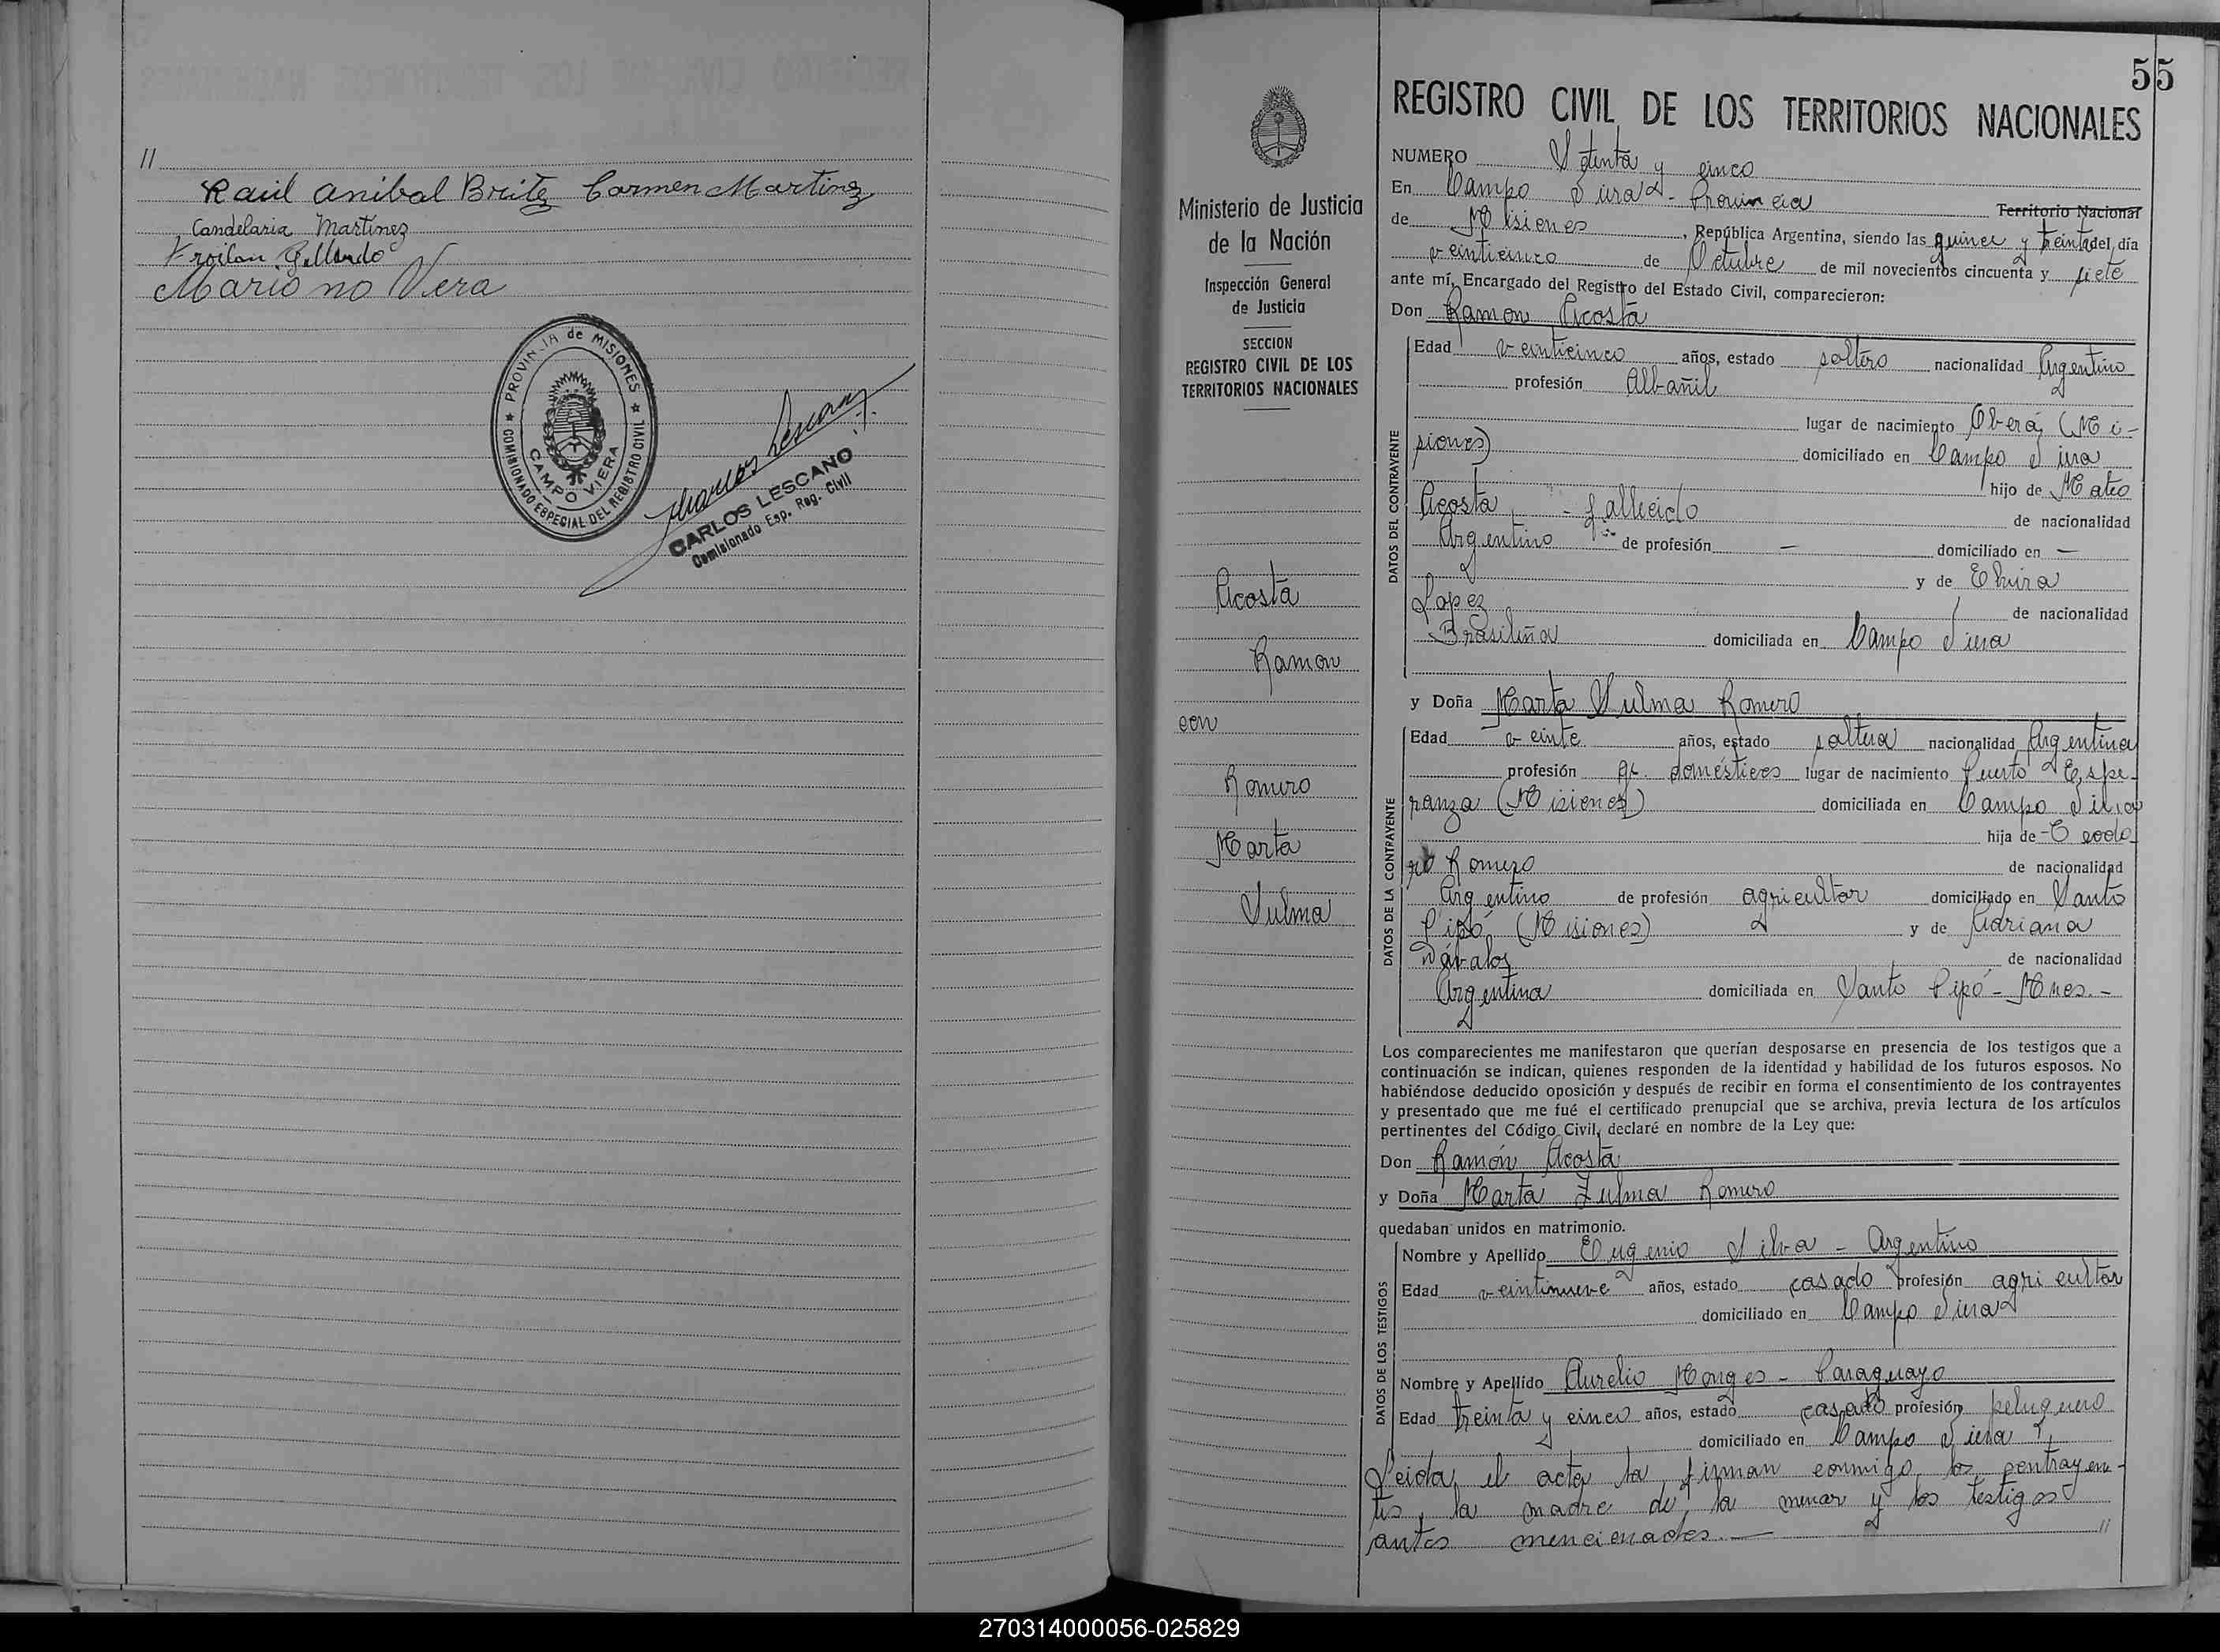 //
Raúl Anibal Britez Carmen Martinez
Candelaria Martinez
Froilan Gallardo
Mariano Vera
PROVINCIA de MISIONES
COMISIONADO ESPECIAL DEL REGISTRO CIVIL
CAMPO VIERA
CARLOS LESCANO
Comisionado Esp. Reg. Civil
55
Ministerio de Justicia
de la Nación
Inspección General
de Justicia
SECCION
REGISTRO CIVIL DE LOS
TERRITORIOS NACIONALES
Acosta
Ramon
con
Romero
Marta
Sulma
REGISTRO CIVIL DE LOS TERRITORIOS NACIONALES
NUMERO Setenta y cinco
En Campo Viera - Provincia Territorio Nacional
de Misiones, República Argentina, siendo las quince y treinta del día
veinticinco de Octubre de mil novecientos cincuenta y siete
ante mí, Encargado del Registro del Estado Civil, comparecieron:
Don Ramon Acosta
DATOS DEL CONTRAYENTE
Edad veinticinco años, estado soltero nacionalidad Argentino
profesión Albañil
lugar de nacimiento Oberá (Mi-
siones) domiciliado en Campo Viera
hijo de Mateo
Acosta - fallecido de nacionalidad
Argentino de profesión — domiciliado en —
y de Elvira
Lopez de nacionalidad
Brasileña domiciliada en Campo Viera
y Doña Marta Sulma Romero
DATOS DE LA CONTRAYENTE
Edad veinte años, estado soltera nacionalidad Argentina
profesión q. domésticos lugar de nacimiento Puerto Espe-
ranza (Misiones) domiciliada en Campo Viera
hija de Teodo
ro Romero de nacionalidad
Argentino de profesión agricultor domiciliado en Santo
Pipó (Misiones) y de Adriana
Dávalos de nacionalidad
Argentina domiciliada en Santo Pipó - Mnes. -
Los comparecientes me manifestaron que querían desposarse en presencia de los testigos que a
continuación se indican, quienes responden de la identidad y habilidad de los futuros esposos. No
habiéndose deducido oposición y después de recibir en forma el consentimiento de los contrayentes
y presentado que me fué el certificado prenupcial que se archiva, previa lectura de los artículos
pertinentes del Código Civil, declaré en nombre de la Ley que:
Don Ramón Acosta
y Doña Marta Zulma Romero
quedaban unidos en matrimonio.
DATOS DE LOS TESTIGOS
Nombre y Apellido Eugenio Silva - Argentino
Edad veintinueve años, estado casado profesión agricultor
domiciliado en Campo Viera
Nombre y Apellido Aurelio Monges - Paraguayo
Edad treinta y cinco años, estado casado profesión peluquero
domiciliado en Campo Viera
Leida el acta la firman conmigo los contrayen-
tes, la madre de la menor y los testigos
antes mencionados. — //
270314000056-025829